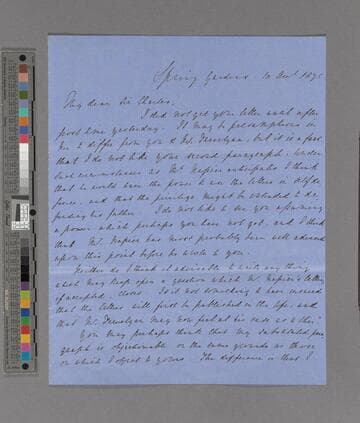 Spring Gardens 10 Nov 1875
My dear Sir Charles,
I did not get your letter until after
post time yesterday. It may be presumptuous in
me to differ from you & Mr Trevelyan, but it is a fact
that I do not like your second paragraph. Under
such circumstances as Mr Napier anticipates I think
that he would have the power to use the letters in self de-
fence, and that the privilege might be extended to de-
fending his father. I do not like to see you assuming
a power which perhaps you have not got, and I think
that Mr Napier has most probably been well advised
upon this point before he wrote to you.
Neither do I think it advisable to write any thing
which may keep open a question which Mr Napier's letter
if accepted, closes. Is it not something to have secured
that the letters will first be published in the life, and
that Mr Trevelyan may now feel at his ease as to this?
You may perhaps think that my substituted para-
graph is objectionable on the same grounds as those
on which I object to yours. The difference is that I